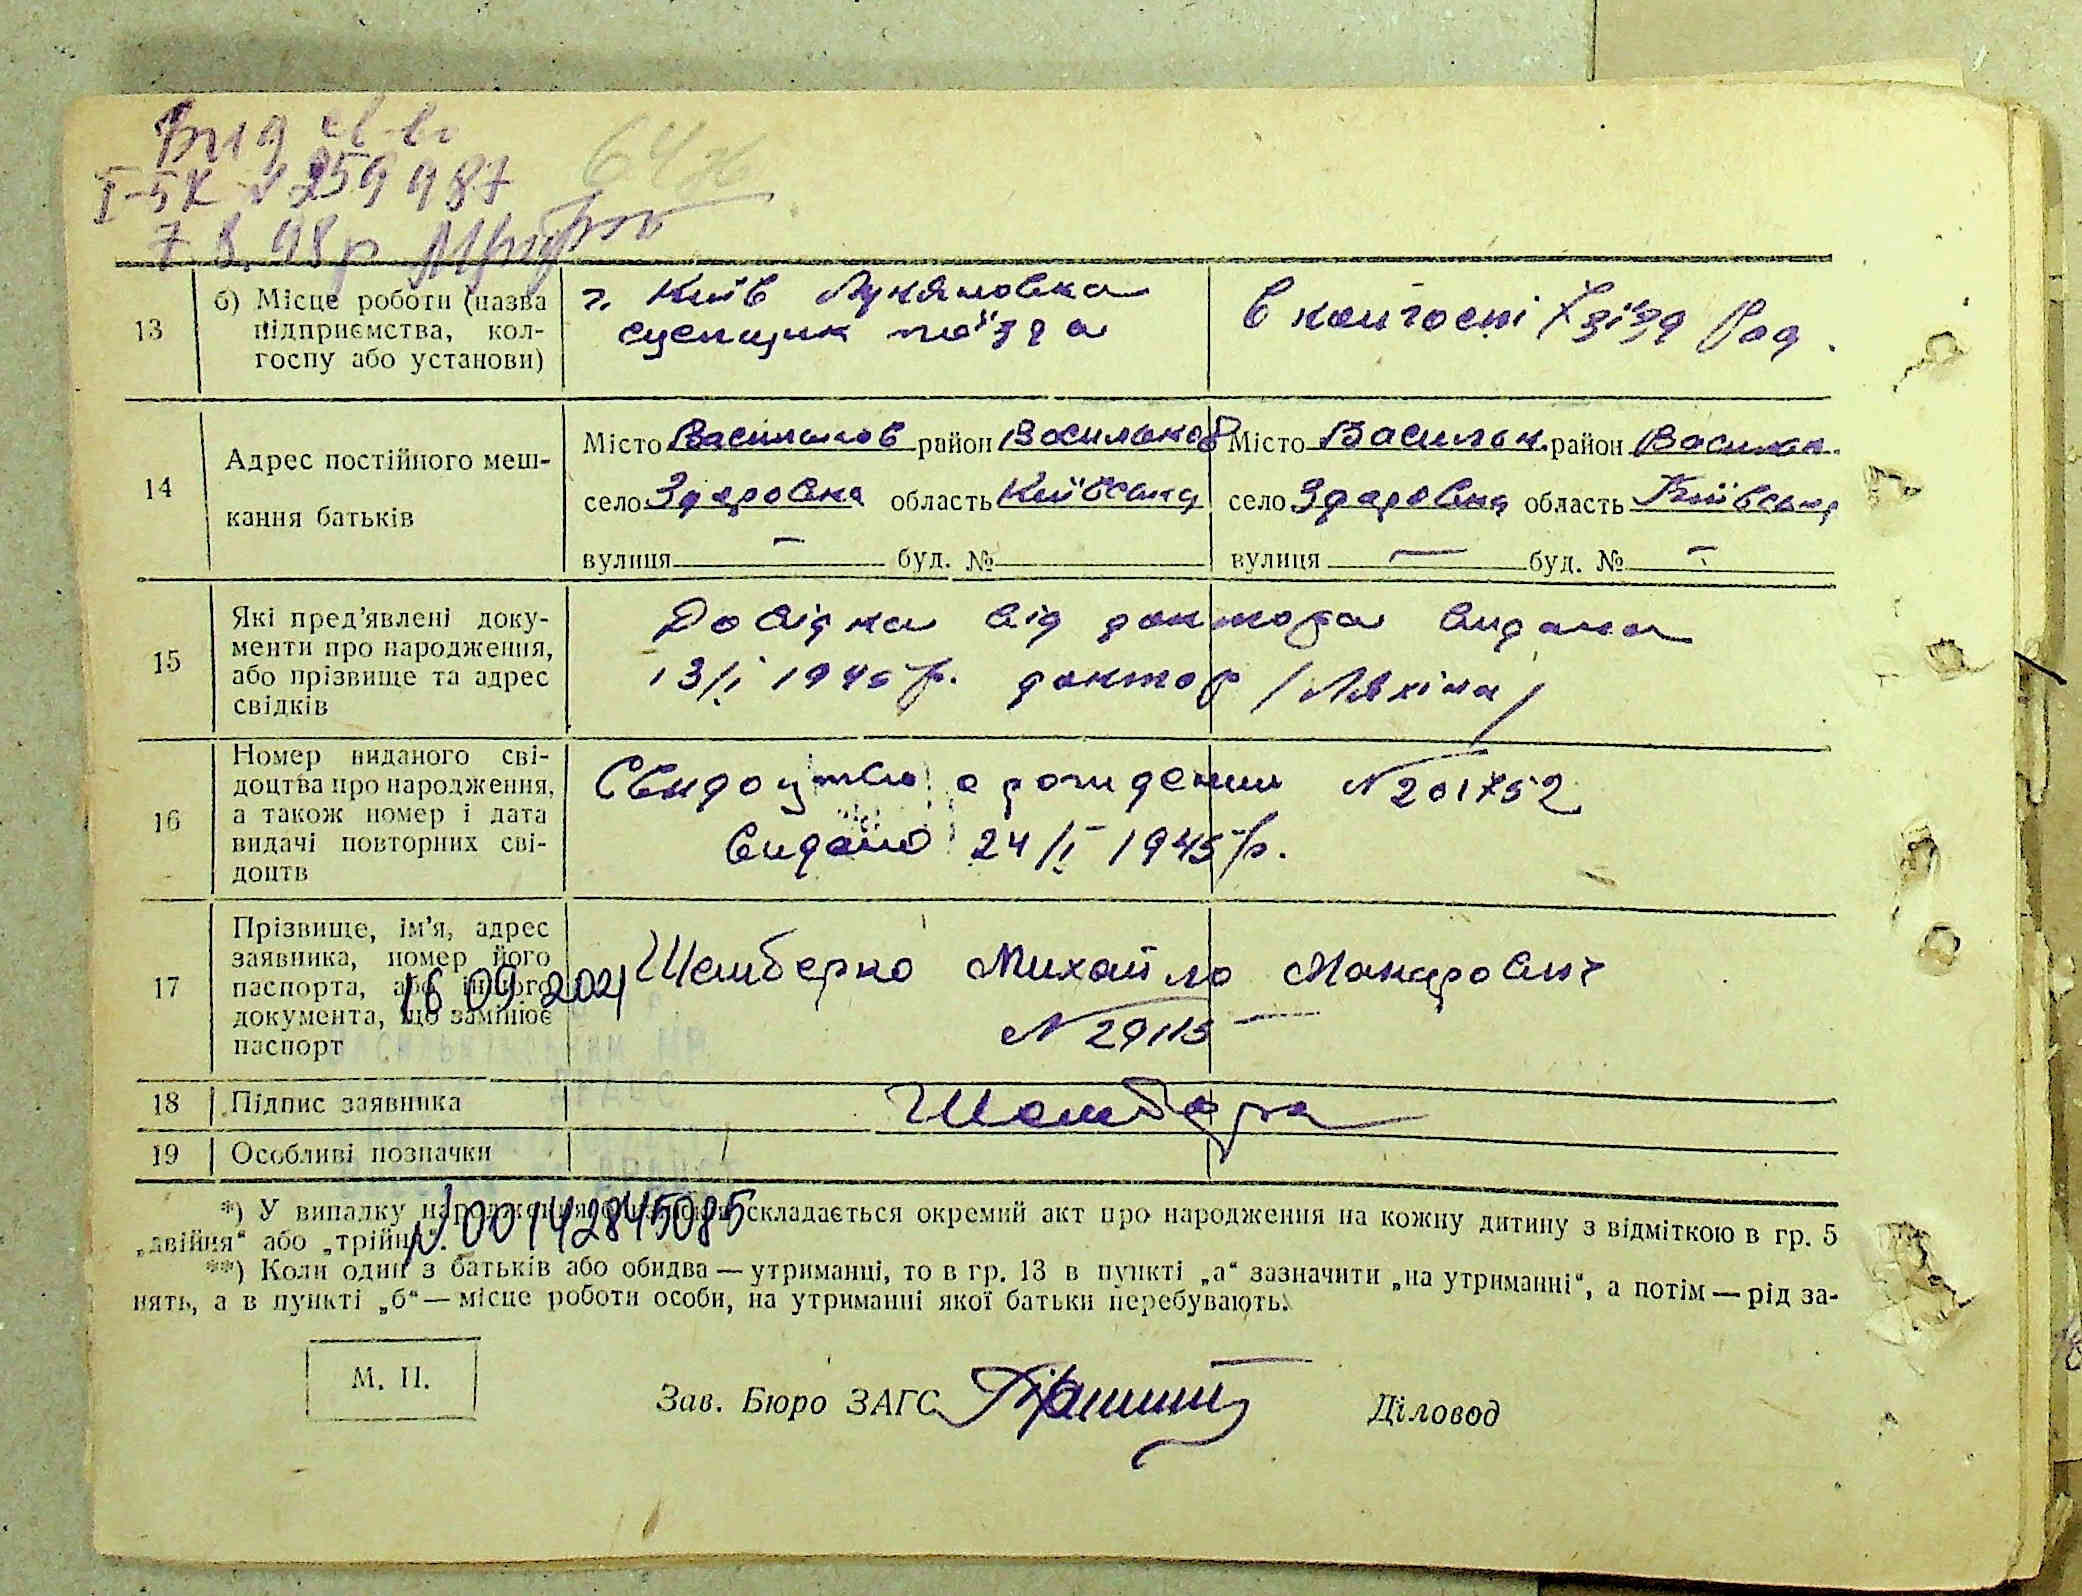 Вид св-во
І-БК № 259987
7.8.98р
64ж
13
б) Місце роботи (назва підприємства, колгоспу або установи)
г. Київ Лукяновка
сцепщик поїзда
в колгоспі Х зїзд Рад.
14
Адрес постійного мешкання батьків
Місто Васильков район Васильков Місто Васильк. район Васильк.
село Здоровка область Київська село Здоровка область Київська
вулиця — буд. № вулиця — буд. № —
15
Які пред'явлені документи про народження, або прізвище та адрес свідків
Довідка від доктора видана
13/I 1945 р. доктор /Ляхіна/
16
Номер виданого свідоцтва про народження, а також номер і дата видачі повторних свідоцтв
Свидоцтво о рождении № 201752
видано 24/I 1945 р.
17
Прізвище, ім'я, адрес заявника, номер його паспорта, або іншого документа, що замінює паспорт
16 09 2021
Шемберко Михайло Макарович
№ 29115 —
18 Підпис заявника
19 Особливі позначки
*) У випадку народження складається окремий акт про народження на кожну дитину з відміткою в гр. 5
„двійня“ або „трійня“.
№ 00142845085
**) Коли один з батьків або обидва — утриманці, то в гр. 13 в пункті „а“ зазначити „на утриманні“, а потім — рід за-
нять, а в пункті „б“ — місце роботи особи, на утриманні якої батьки перебувають.
М. П.
Зав. Бюро ЗАГС Діловод